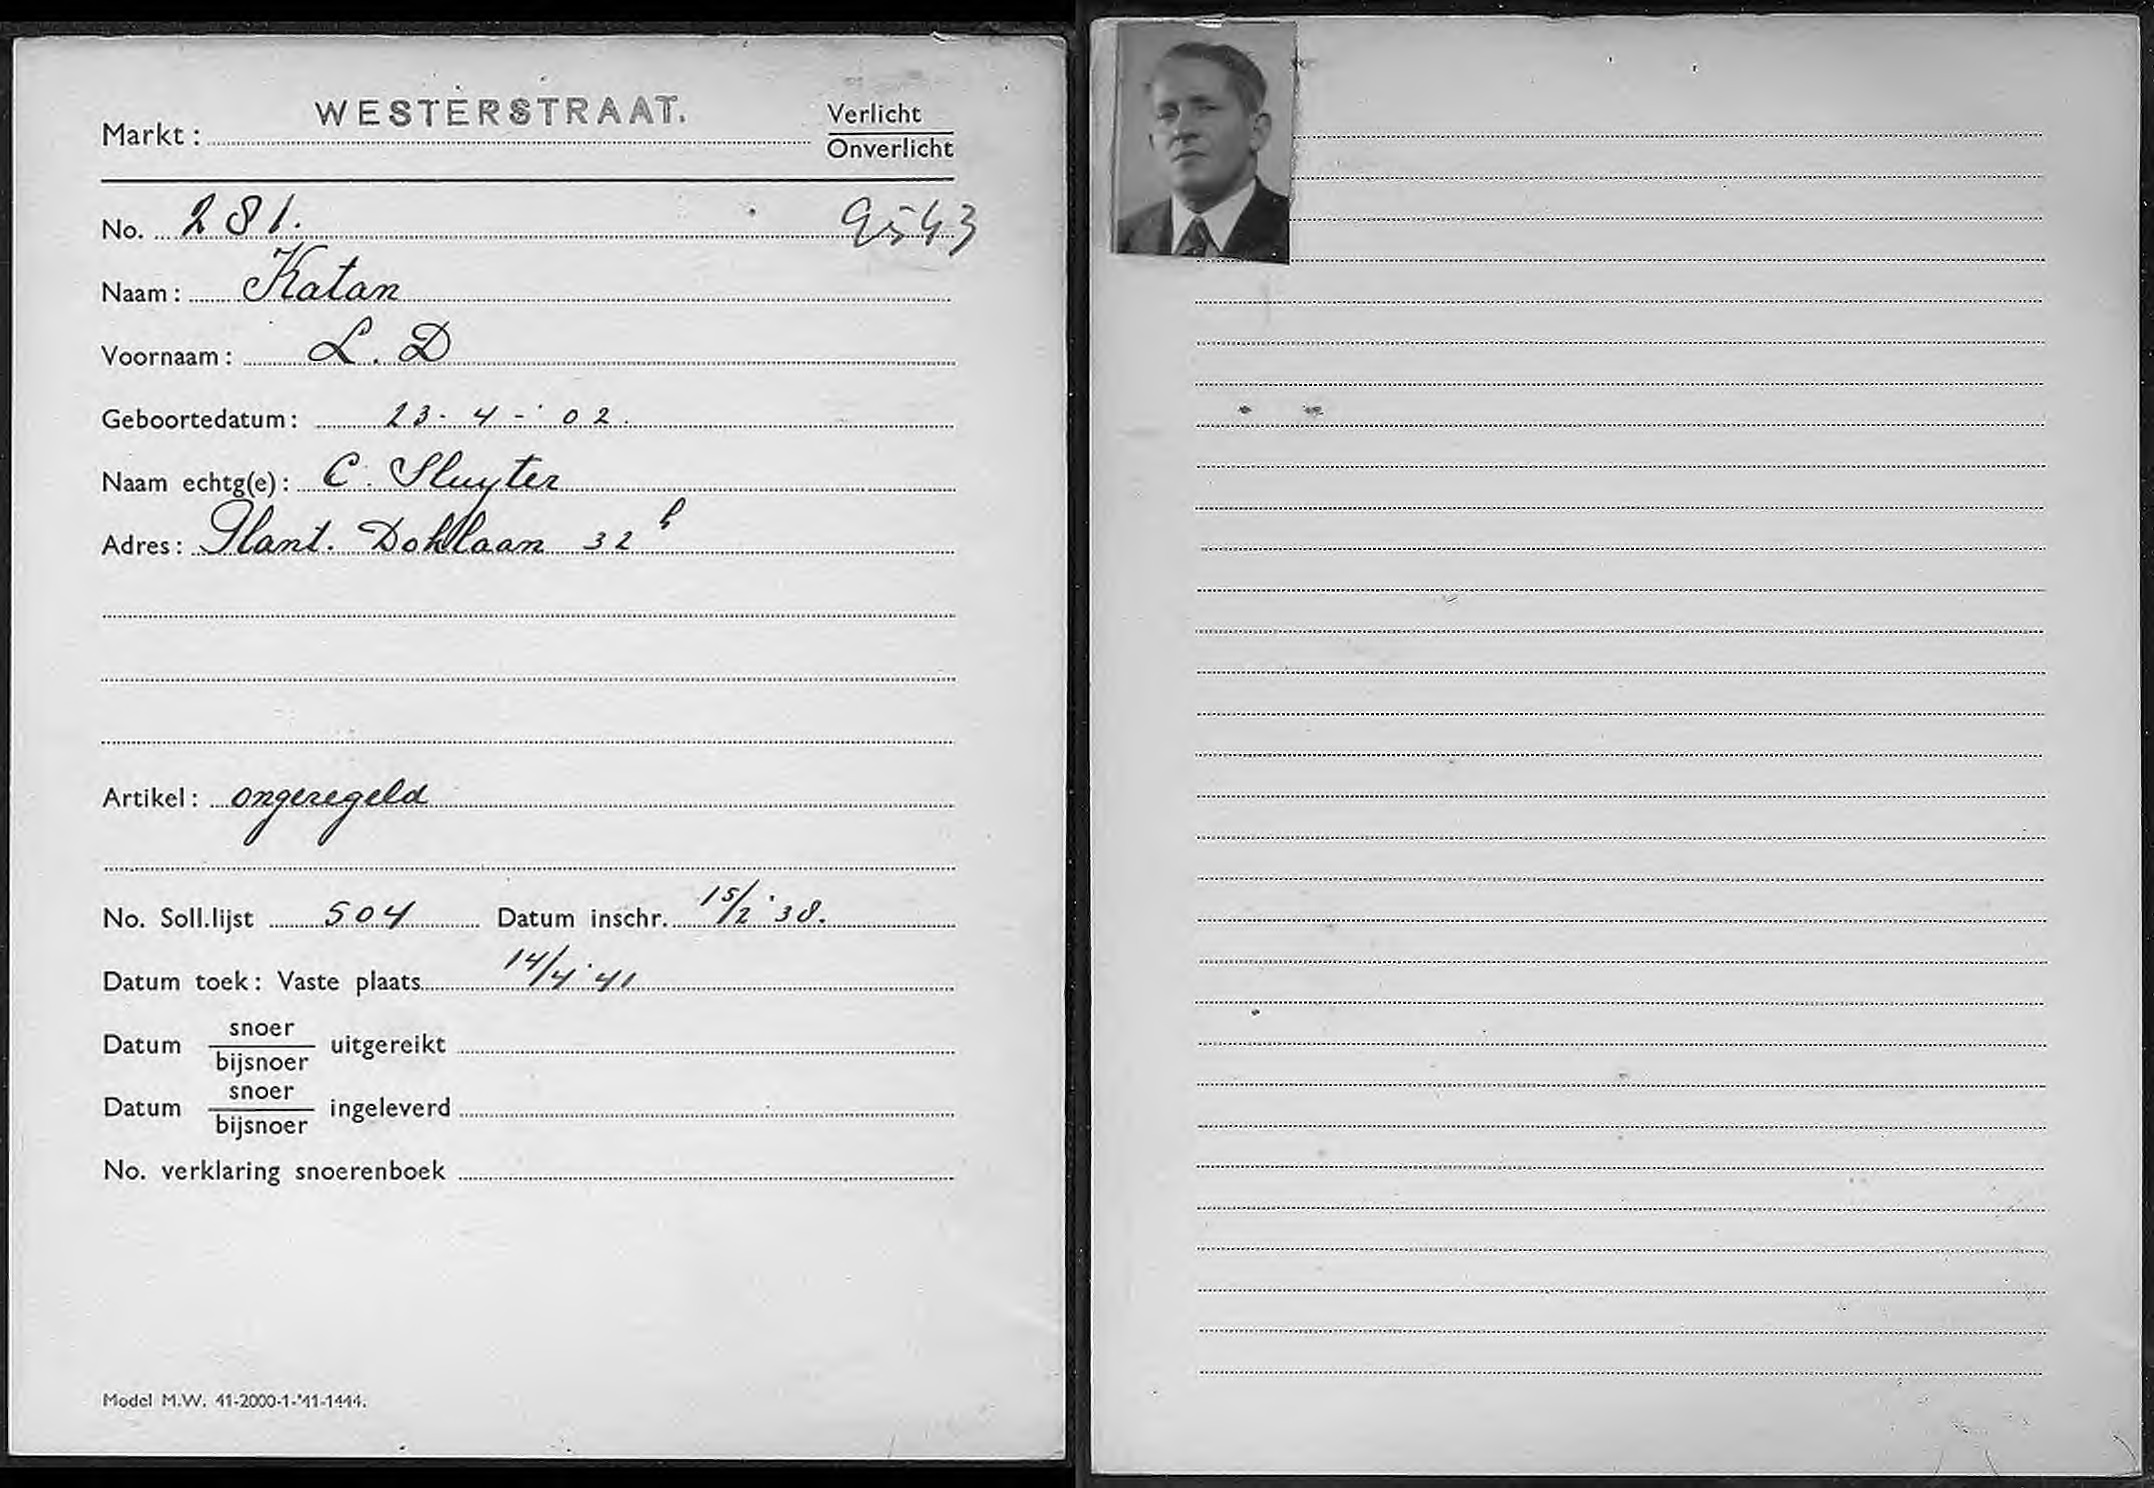 WESTERSTRAAT.
Markt :
Verlicht
Onverlicht
No. 281. 9543
Naam : Katan
Voornaam : L. D
Geboortedatum : 23 - 4 - '02.
Naam echtg(e) : C. Sluyter
Adres : Plant. Doklaan 32 h
Artikel : ongeregeld
No. Soll.lijst 504 Datum inschr. 15/2 '38.
Datum toek : Vaste plaats 14/4 '41
Datum snoer/bijsnoer uitgereikt
Datum snoer/bijsnoer ingeleverd
No. verklaring snoerenboek
Model M.W. 41-2000-1-'41-1444.